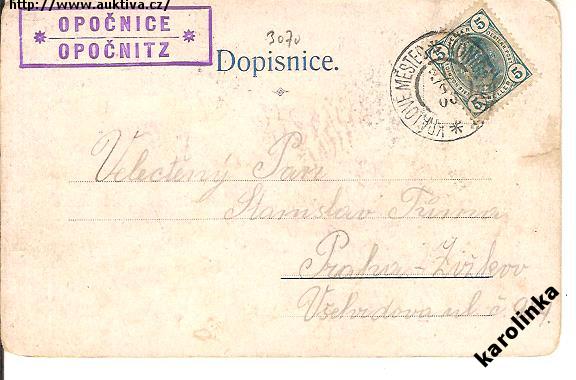 http://www.auktiva.cz/
* OPOČNICE *
OPOČNITZ
3070
Dopisnice.
5 5 5 5
KRÁLOVÉ MĚSTEC
Velectěný Pan
Stanislav
Praha-Žižkov
ul. č.
karolinka